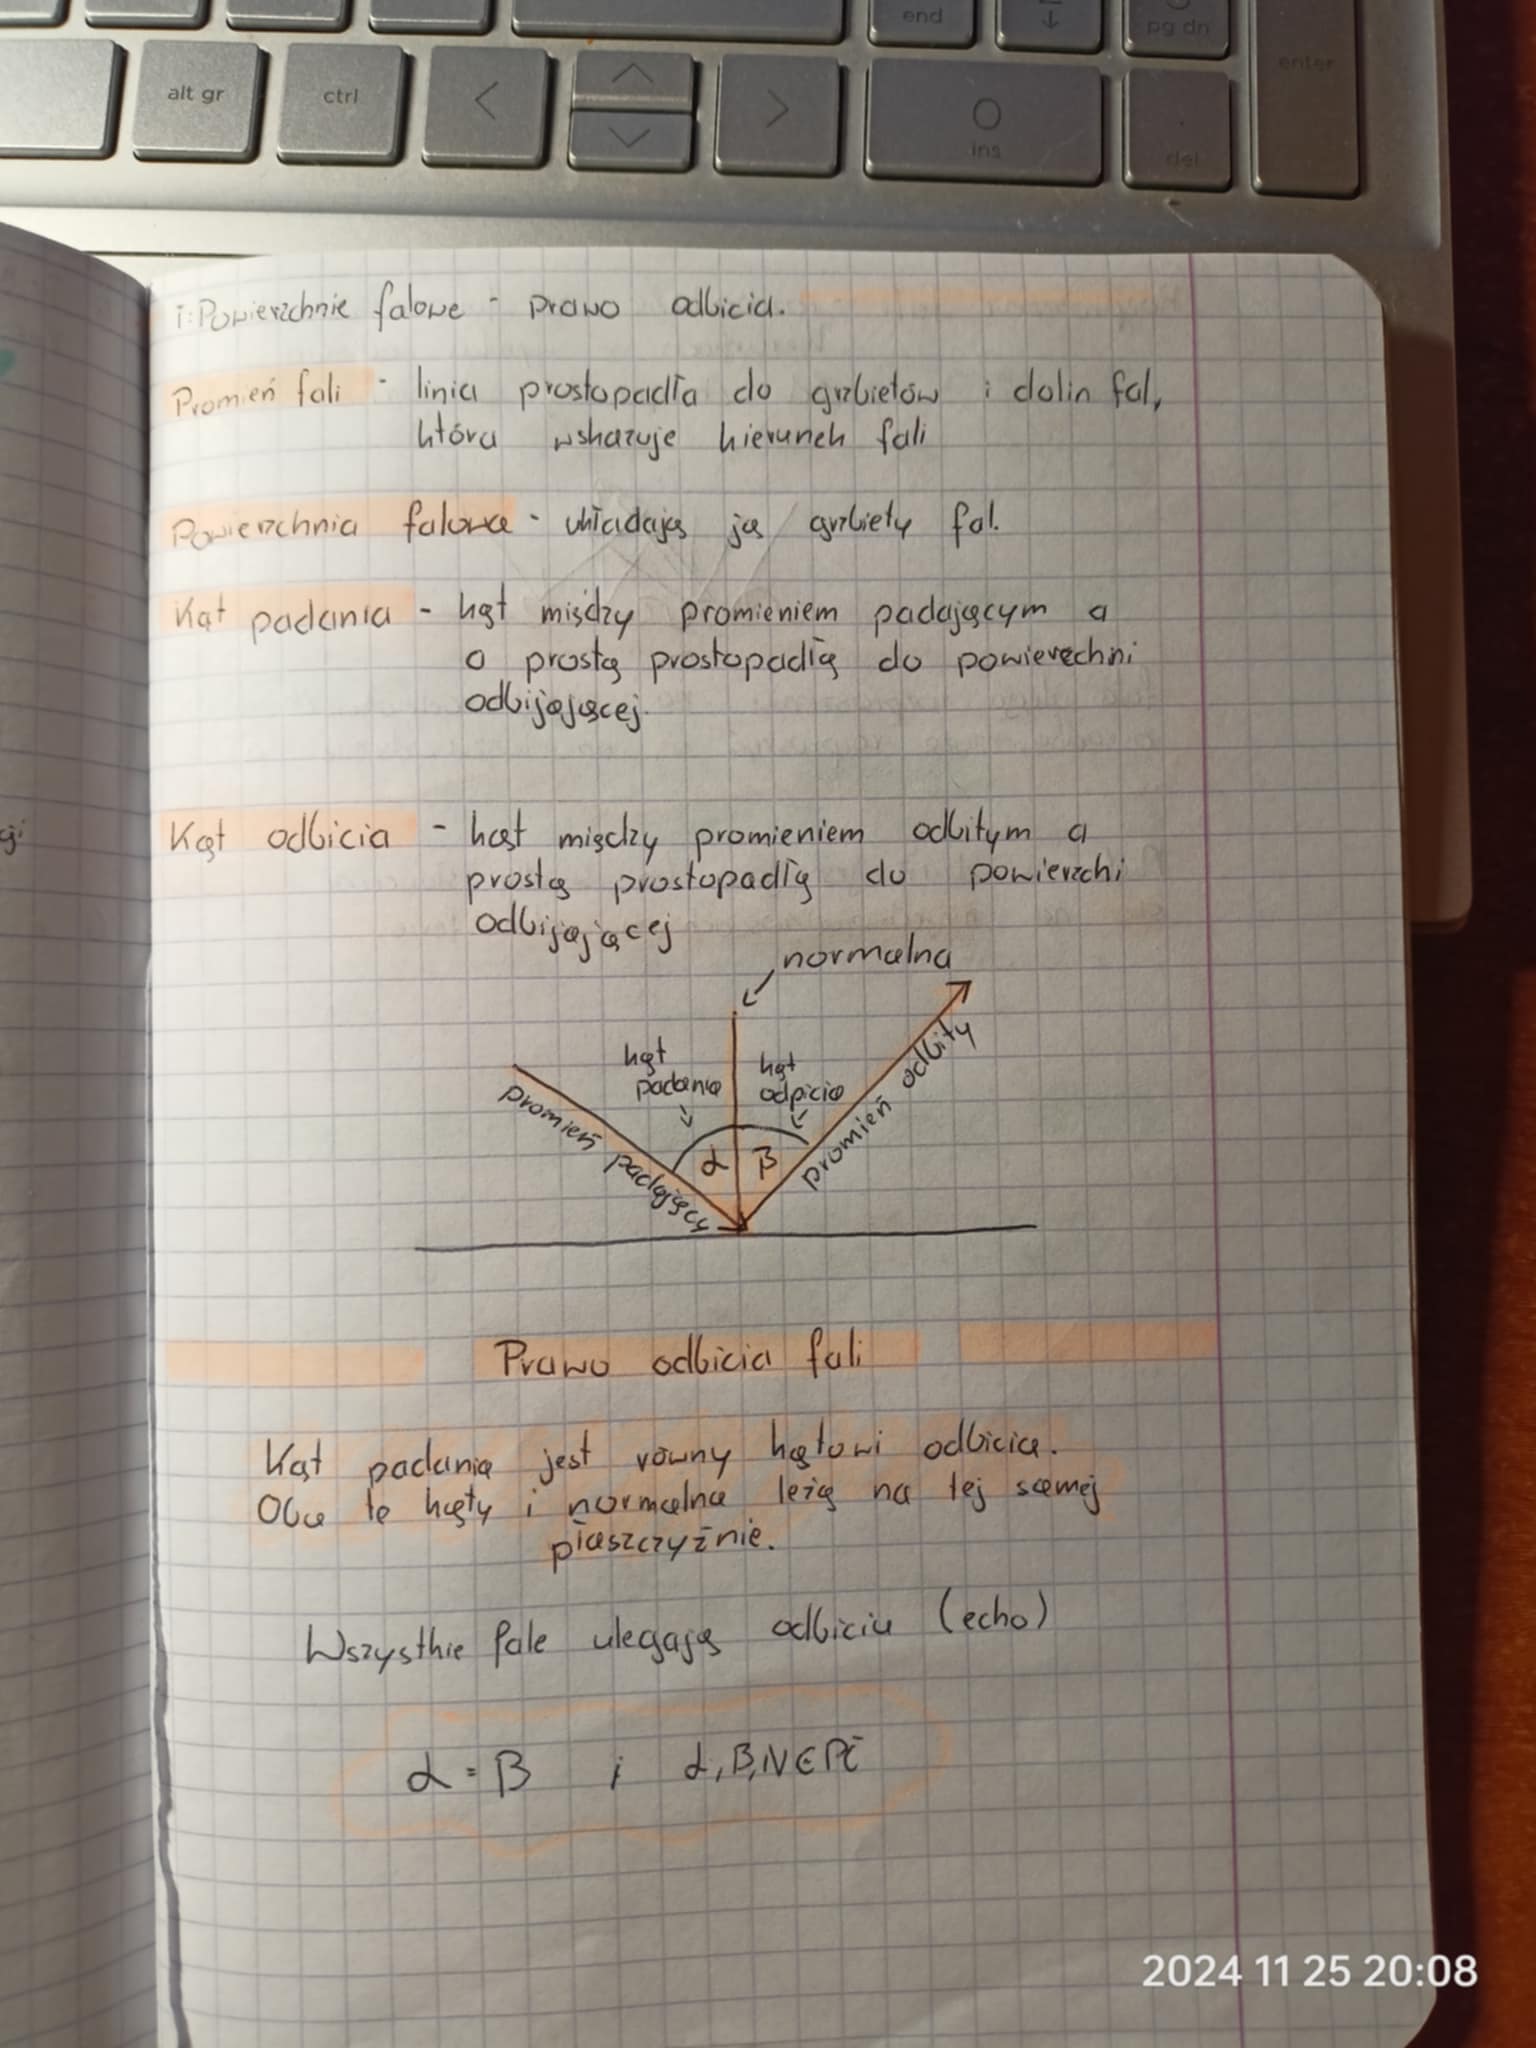 end
pg dn
enter
alt gr
ctrl
ins
del
i: Powierzchnie falowe - prawo odbicia.
Promień fali - linia prostopadła do grzbietów i dolin fal,
która wskazuje kierunek fali
Powierzchnia falowa - układają ją grzbiety fal.
Kąt padania - kąt między promieniem padającym a
o prostą prostopadłą do powierzchni
odbijającej.
Kąt odbicia - kąt między promieniem odbitym a
prostą prostopadłą do powierzchi
odbijającej
normalna
kąt
padania
kąt
odpicia
promień padający
promień odbity
α β
Prawo odbicia fali
Kąt padania jest równy kątowi odbicia.
Oba te kąty i normalna leżą na tej samej
płaszczyźnie.
Wszystkie fale ulegają odbiciu (echo)
α = β i α, β, N ∈ Pł
2024 11 25 20:08